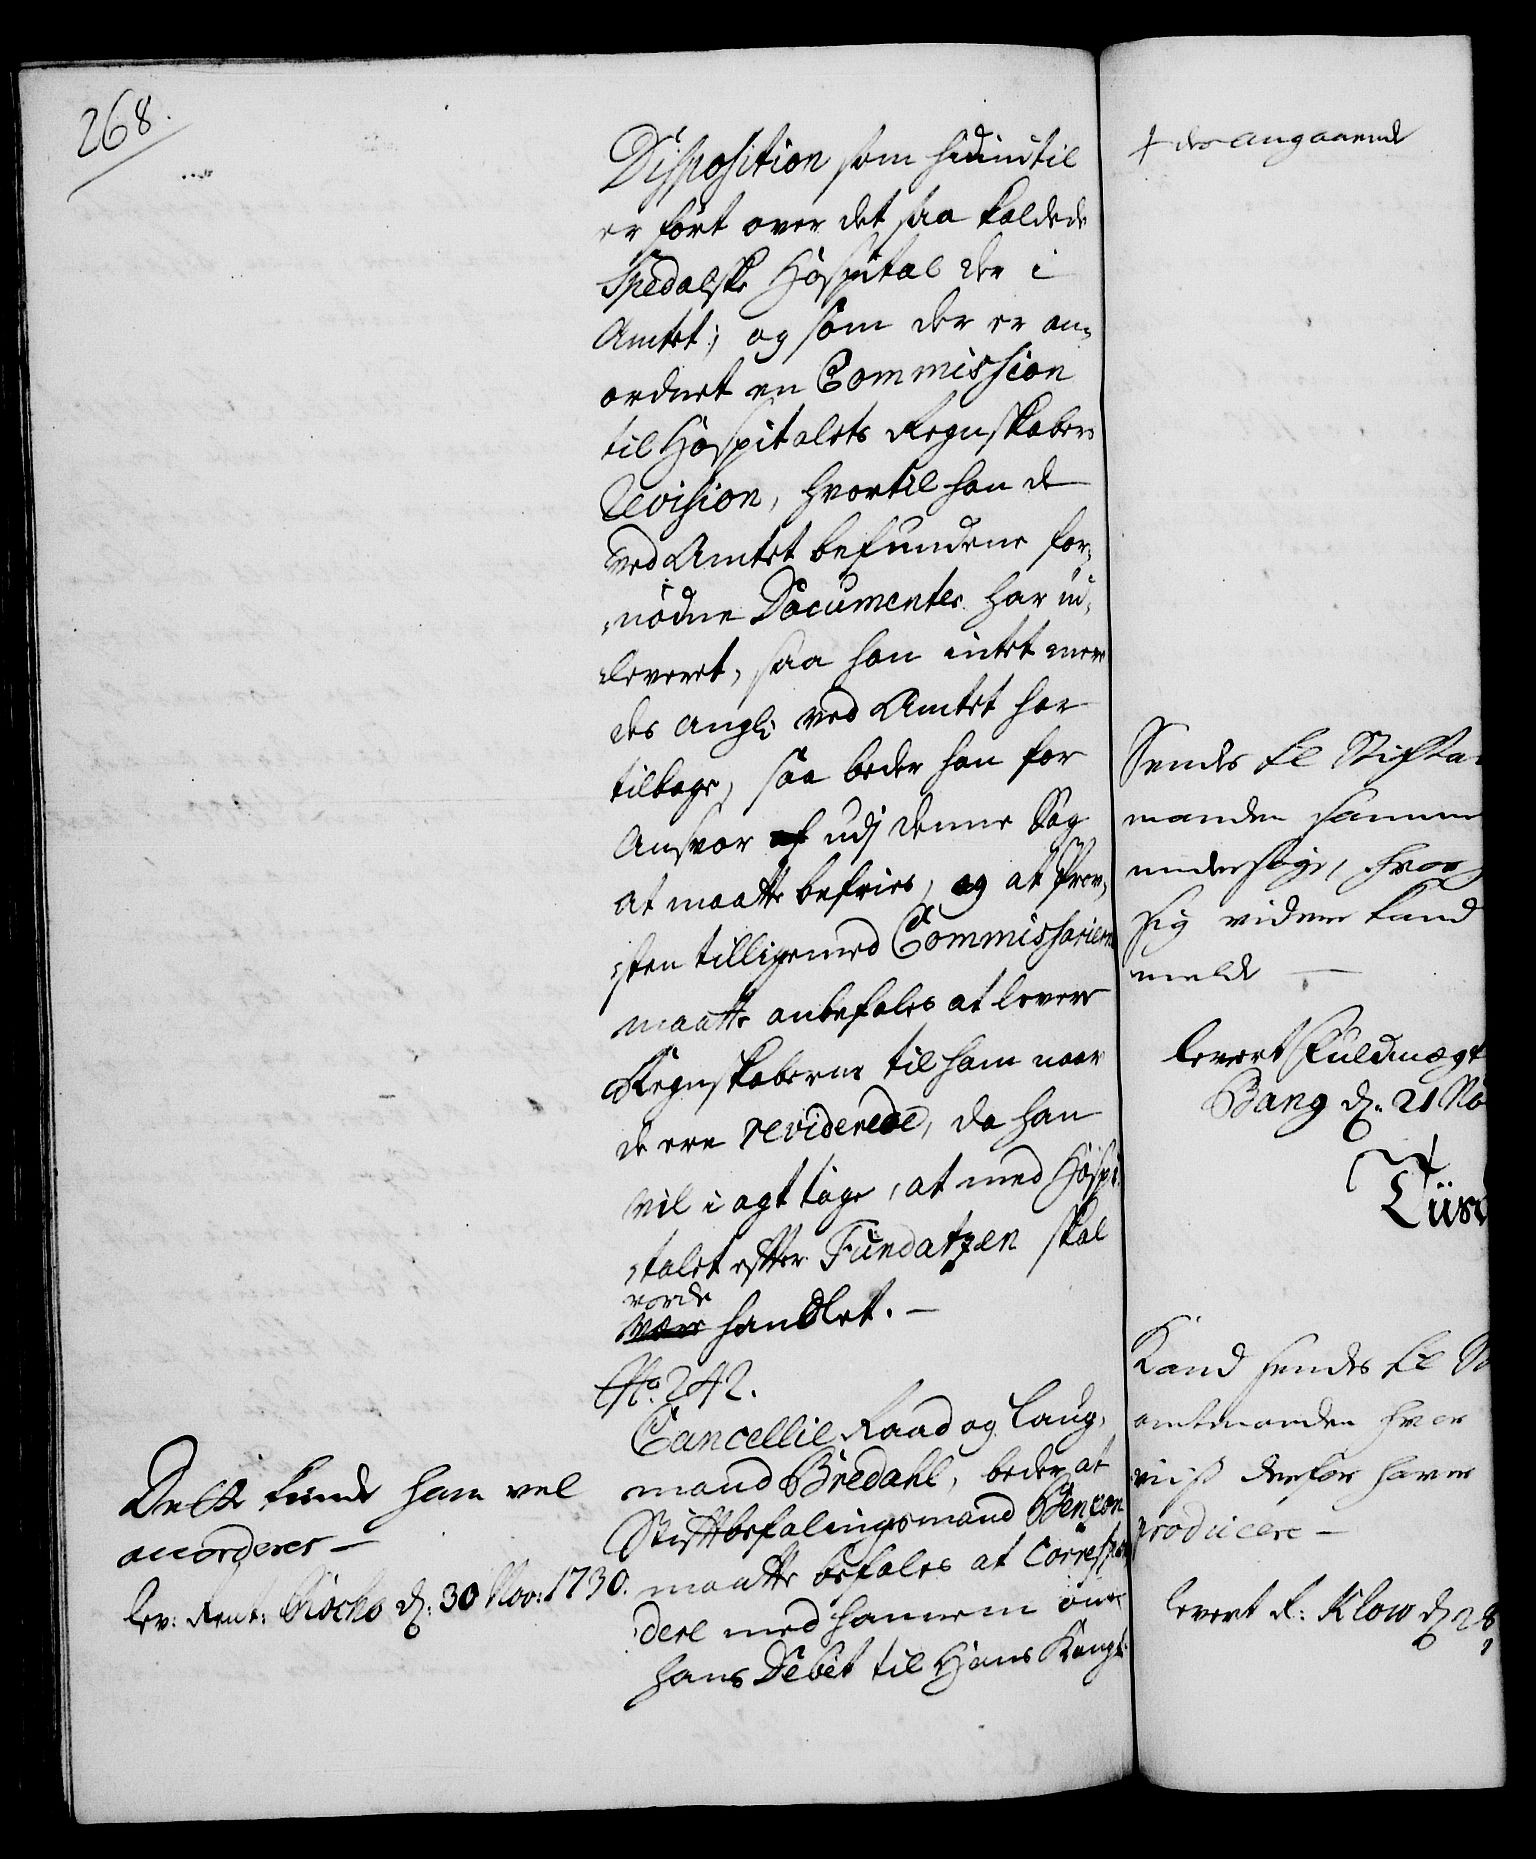 268.
Disposition som hidindtil
er ført over det saa kaldede
Spedalske Hospital der i
Amtet; og som der er an¬
ordnet en Commission
til Hospitalets Regnskabers
Revision, hvortil han de
ved Amtet befundene for¬
nødne Documenter har ud¬
leveret, saa han intet mere
des angl: ved Amtet har
tilbage, saa beder han for
Ansvar udj denne Sag
at maatte befries, og at Prov¬
sten tilligemed Commissarierne
maatte anbefales at levere
Regnskaberne til ham naar
de ere reviderede, da han
vil i agt tage, at med Hospi¬
talet efter Fundatzen skal
vorde
være handlet. —
No. 242.
Cancellie Raad og Laug¬
mand Bredahl, beder at
Stiftbefalingsmand Benzon
maatte befales at Correspon
dere med hannem om
hans Debet til Hans Kongl:
Dette kunde ham vel
accorderes —
lev: Rent: d: 30 Nov: 1730.
† des angaaende
Sendes til Stiftam
manden hannem
undersøge, hvor
sig videre kand
melde —
levert Fuldmægt
Bang d: 21 No
Kand sendes til St
amtmanden hvor
viiss derfor haver
producere —
levert R: Klow d 28